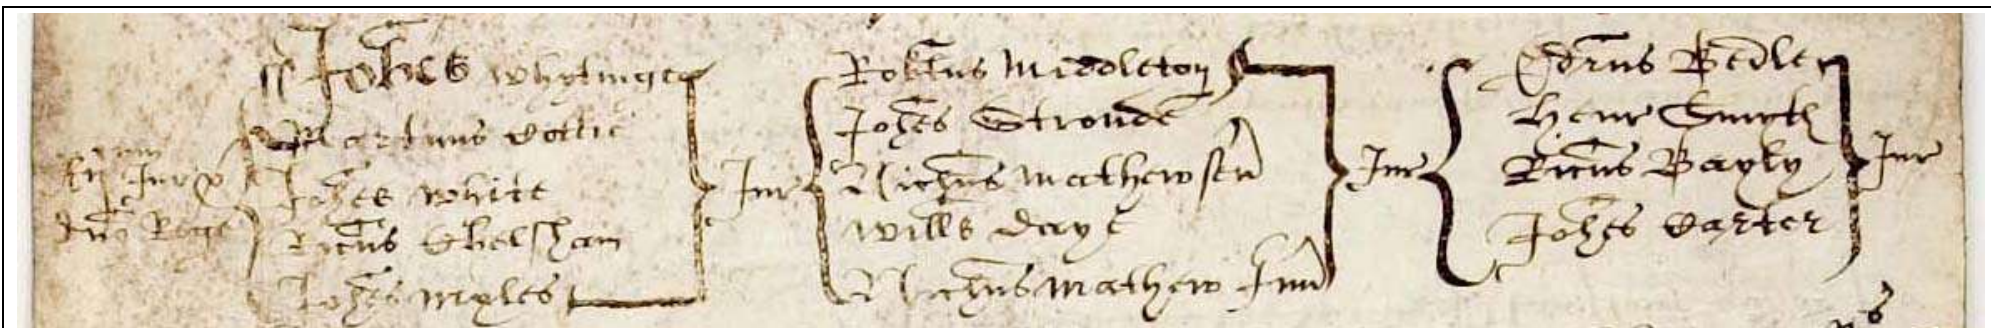 Johes Whytinge
Martinus Cottie
Johes White
Ricus Ebelsham
Johes Myles
Jur
Robtus Middleton
Johes Stroude
Nichus Mathew sen
Wills Daye
Nichus Mathew Jun
Jur
Edrus Bedle
Henr Smyth
Ricus Bayly
Johes Carter
Jur